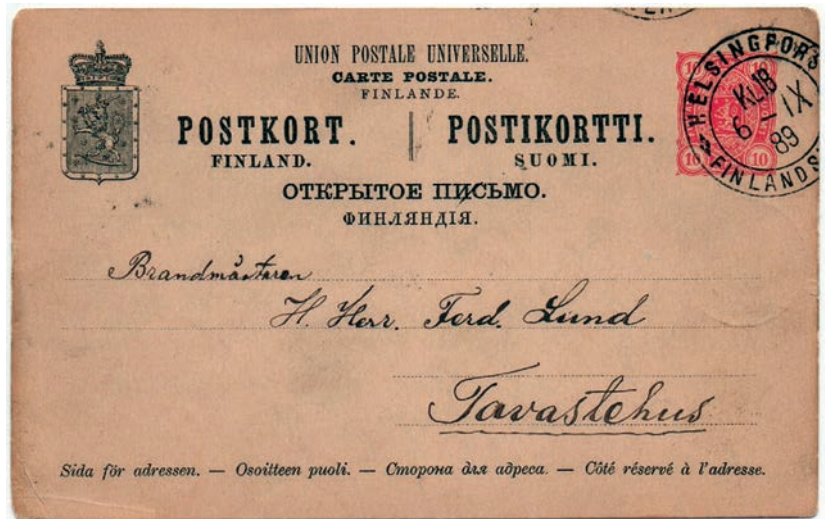 UNION POSTALE UNIVERSELLE.
CARTE POSTALE.
FINLANDE.
POSTKORT. POSTIKORTTI.
FINLAND. SUOMI.
ОТКРЫТОЕ ПИСЬМО.
ФИНЛЯНДІЯ.
10 10
10 10
HELSINGFORS
KL.18
6 – IX
89
FINLANDS
Brandmästaren
H. Herr. Ferd. Lund
Tavastehus
Sida för adressen. — Osoitteen puoli. — Сторона для адреса. — Côté réservé à l'adresse.